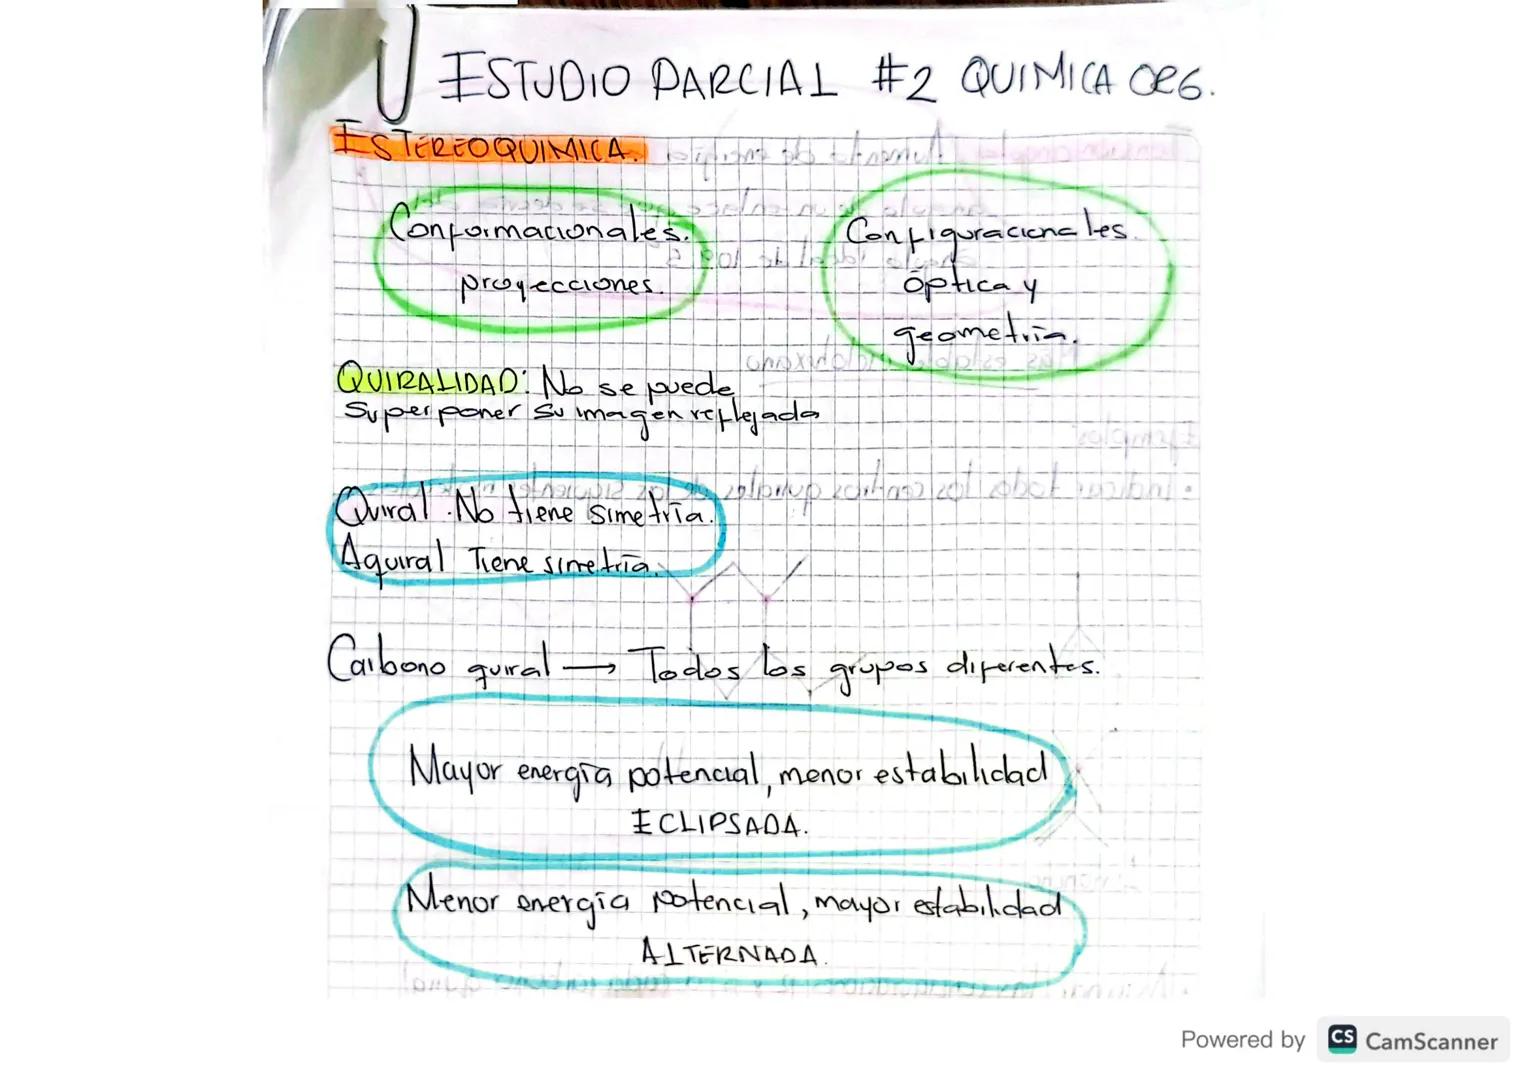 ESTUDIO PARCIAL #2 QUIMICA ORG.
ESTEREOQUIMICA.
Conformacionales.
proyecciones.
Configuracionales.
óptica y
geometría.
QUIRALIDAD: No se puede
superponer su imagen reflejada
Quiral. No tiene simetría.
Aquiral Tiene simetría.
Carbono quiral → Todos los grupos diferentes.
Mayor energía potencial, menor estabilidad
ECLIPSADA.
Menor energía potencial, mayor estabilidad
ALTERNADA.
Powered by CS CamScanner